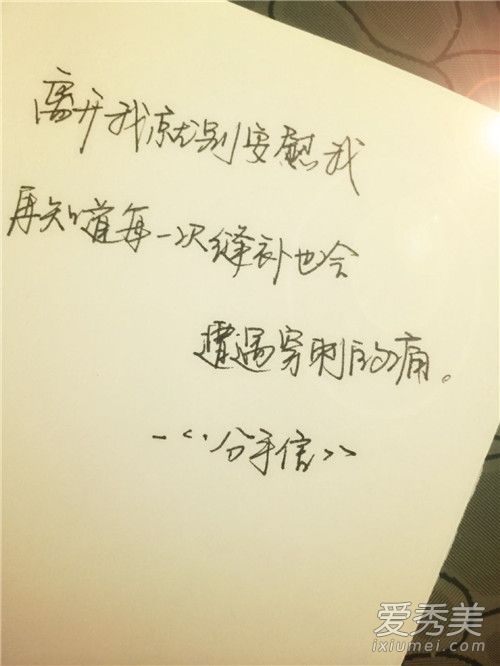 离开我就别安慰我
再知道每一次缝补也会
遭遇穿刺的痛。
—《分手信》
爱秀美
ixiumei.com